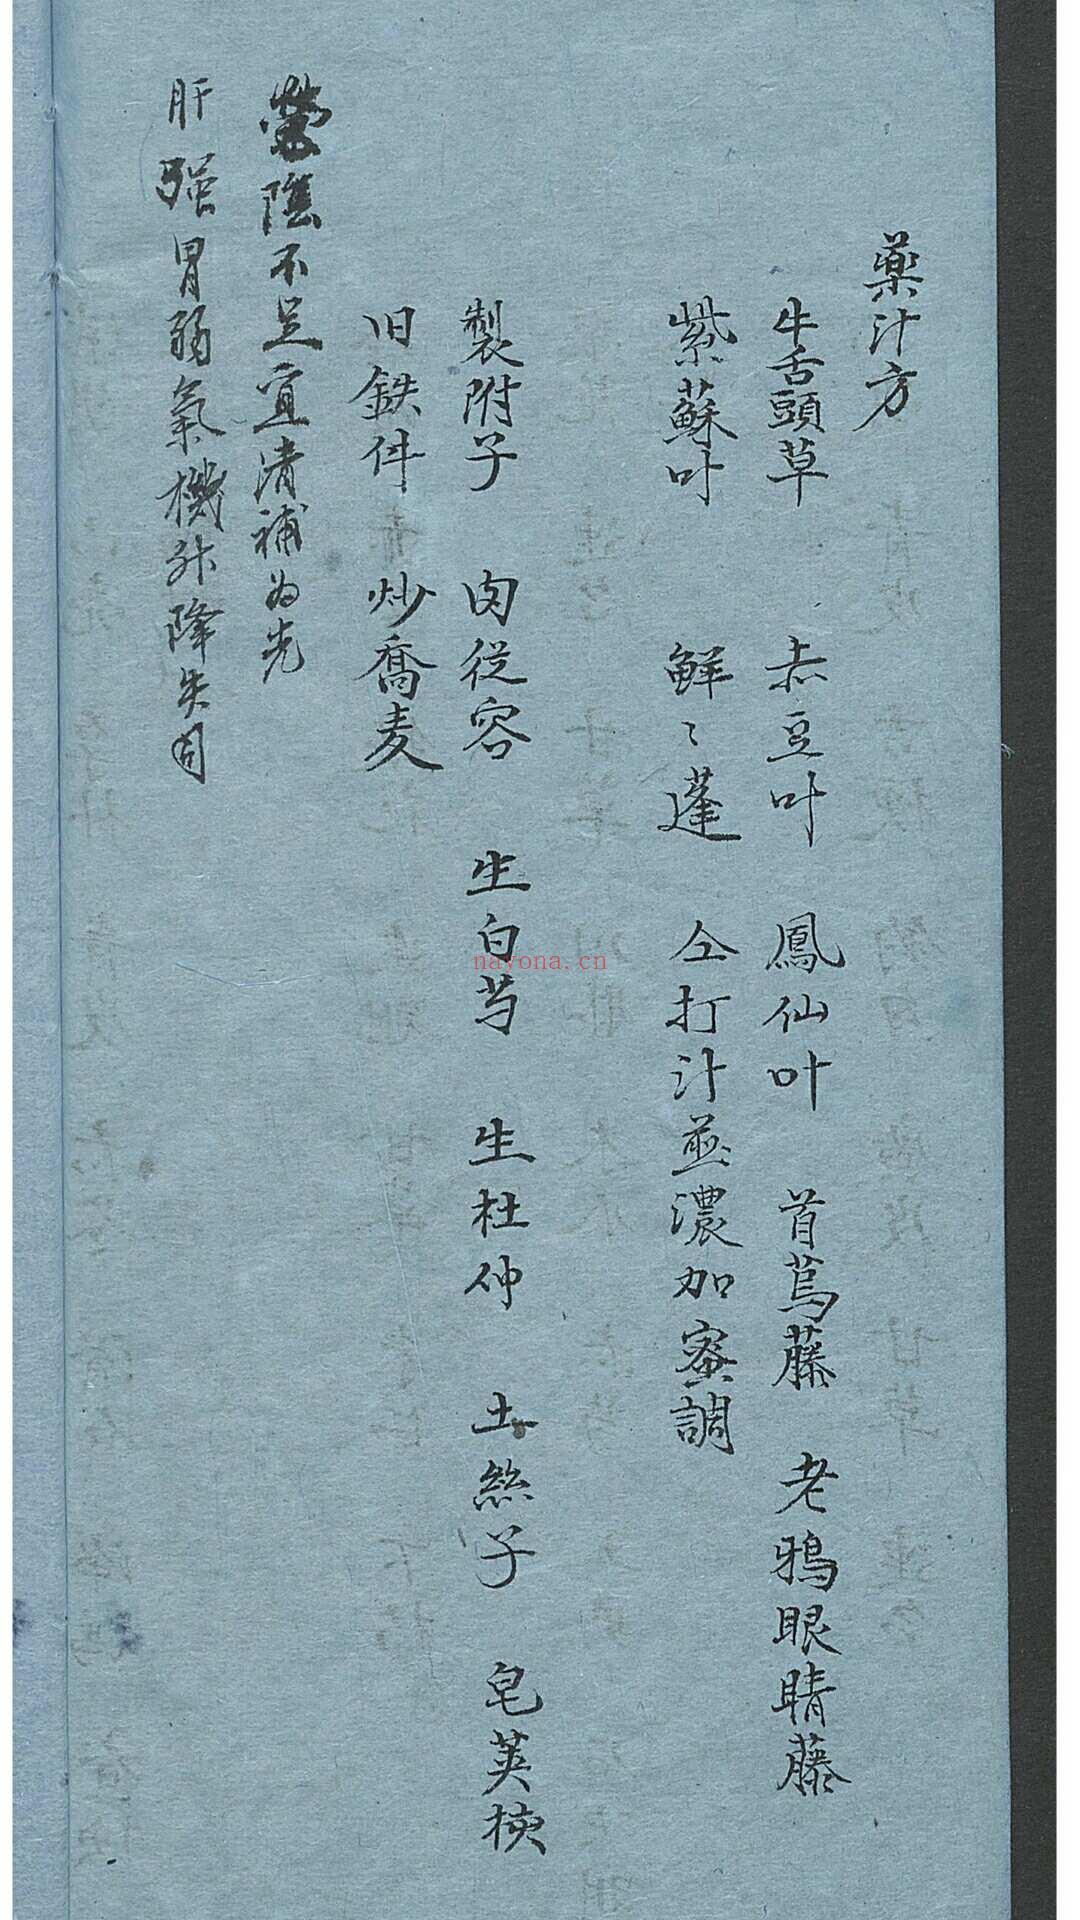 藥汁方
牛舌頭草 赤豆叶 鳳仙叶 首蔦藤 老鴉眼睛藤
紫蘇叶 鮮〻蓬 仝打汁並濃加蜜調
製附子 肉從容 生白芍 生杜仲 土絲子 皂莢
旧鉄件 炒喬麦
營陰不足宜清補为先
肝强胃弱氣機升降失司
nayona.cn